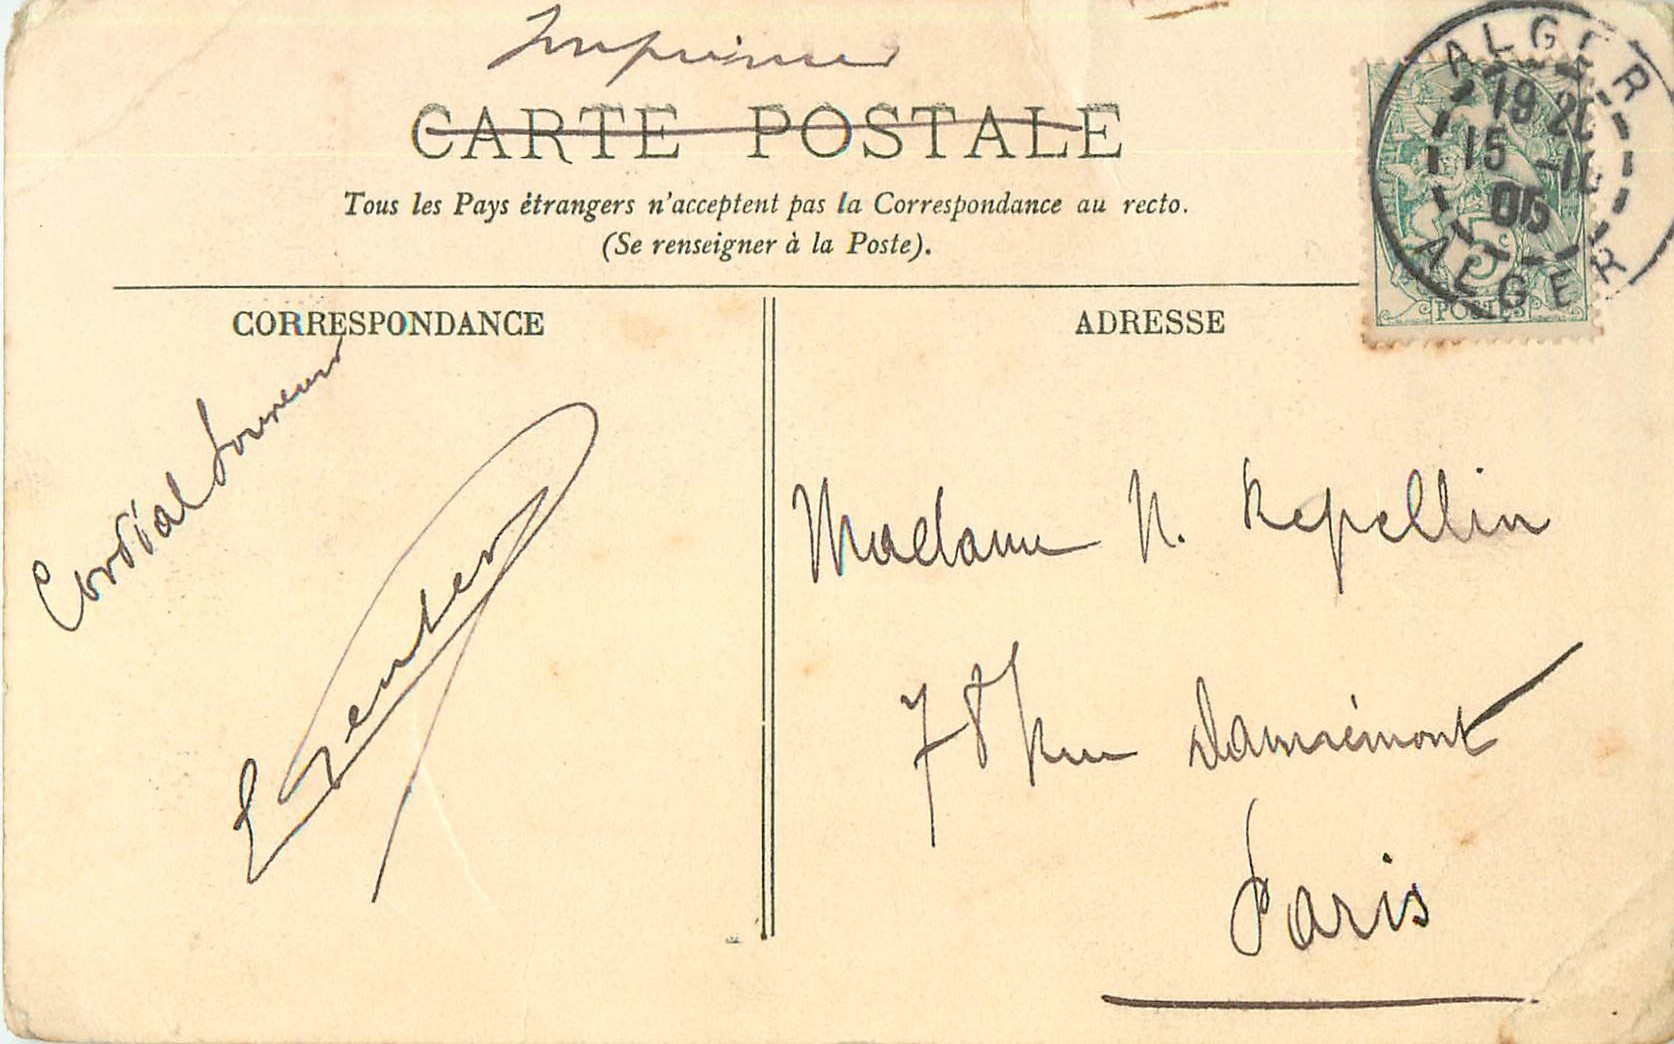 Imprimé
CARTE POSTALE
Tous les Pays étrangers n'acceptent pas la Correspondance au recto.
(Se renseigner à la Poste).
ALGER
19 20
15 -10
05
ALGER
5 c
POSTES
CORRESPONDANCE
Cordial souvenir
ADRESSE
Madame N. Repellin
78 Rue Damrémont
Paris